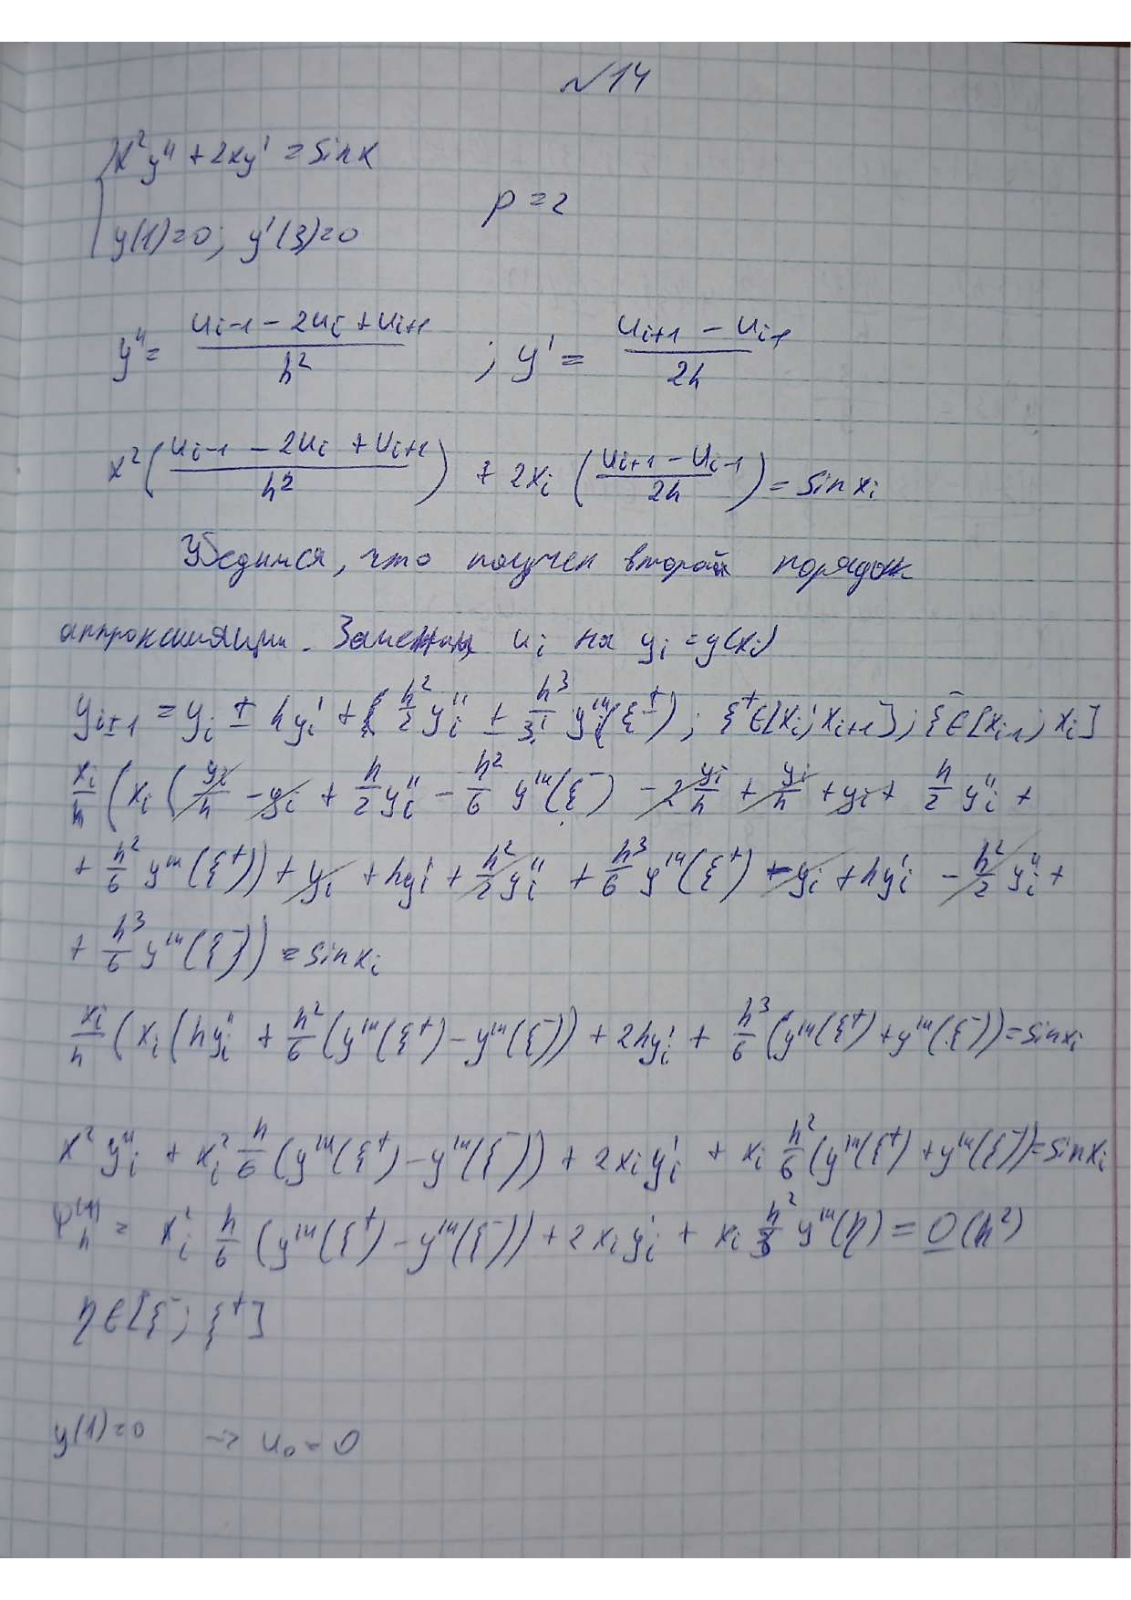 №14
x²y'' + 2xy' = sin x
p = 2
y(1)=0; y'(3)=0
y'' = (u_{i-1} - 2u_i + u_{i+1})/h² ; y' = (u_{i+1} - u_{i-1})/2h
x²((u_{i-1} - 2u_i + u_{i+1})/h²) + 2x_i((u_{i+1} - u_{i-1})/2h) = sin x_i
Убедимся, что получен второй порядок
аппроксимации. Заменим u_i на y_i = y(x_i)
y_{i±1} = y_i ± hy_i' + h²/2 y_i'' ± h³/3! y'''(ξ^±); ξ^+∈[x_i; x_{i+1}]; ξ^-∈[x_{i-1}; x_i]
x_i/h (x_i (y_i/h - y_i + h/2 y_i'' - h²/6 y'''(ξ^-) - 2 y_i/h + y_i/h + y_i + h/2 y_i'' +
+ h²/6 y'''(ξ^+)) + y_i + hy_i' + h²/2 y_i'' + h³/6 y'''(ξ^+) - y_i + hy_i' - h²/2 y_i'' +
+ h³/6 y'''(ξ^-)) = sin x_i
x_i/h (x_i (hy_i'' + h²/6 (y'''(ξ^+) - y'''(ξ^-)) + 2hy_i' + h³/6 (y'''(ξ^+) + y'''(ξ^-)) = sin x_i
x² y_i'' + x_i² h/6 (y'''(ξ^+) - y'''(ξ^-)) + 2x_i y_i' + x_i h²/6 (y'''(ξ^+) + y'''(ξ^-)) = sin x_i
= x_i² h/6 (y'''(ξ^+) - y'''(ξ^-)) + 2x_i y_i' + x_i h²/3 y'''(η) = O(h²)
η∈[ξ^-; ξ^+]
y(1)=0 → u_0 = 0